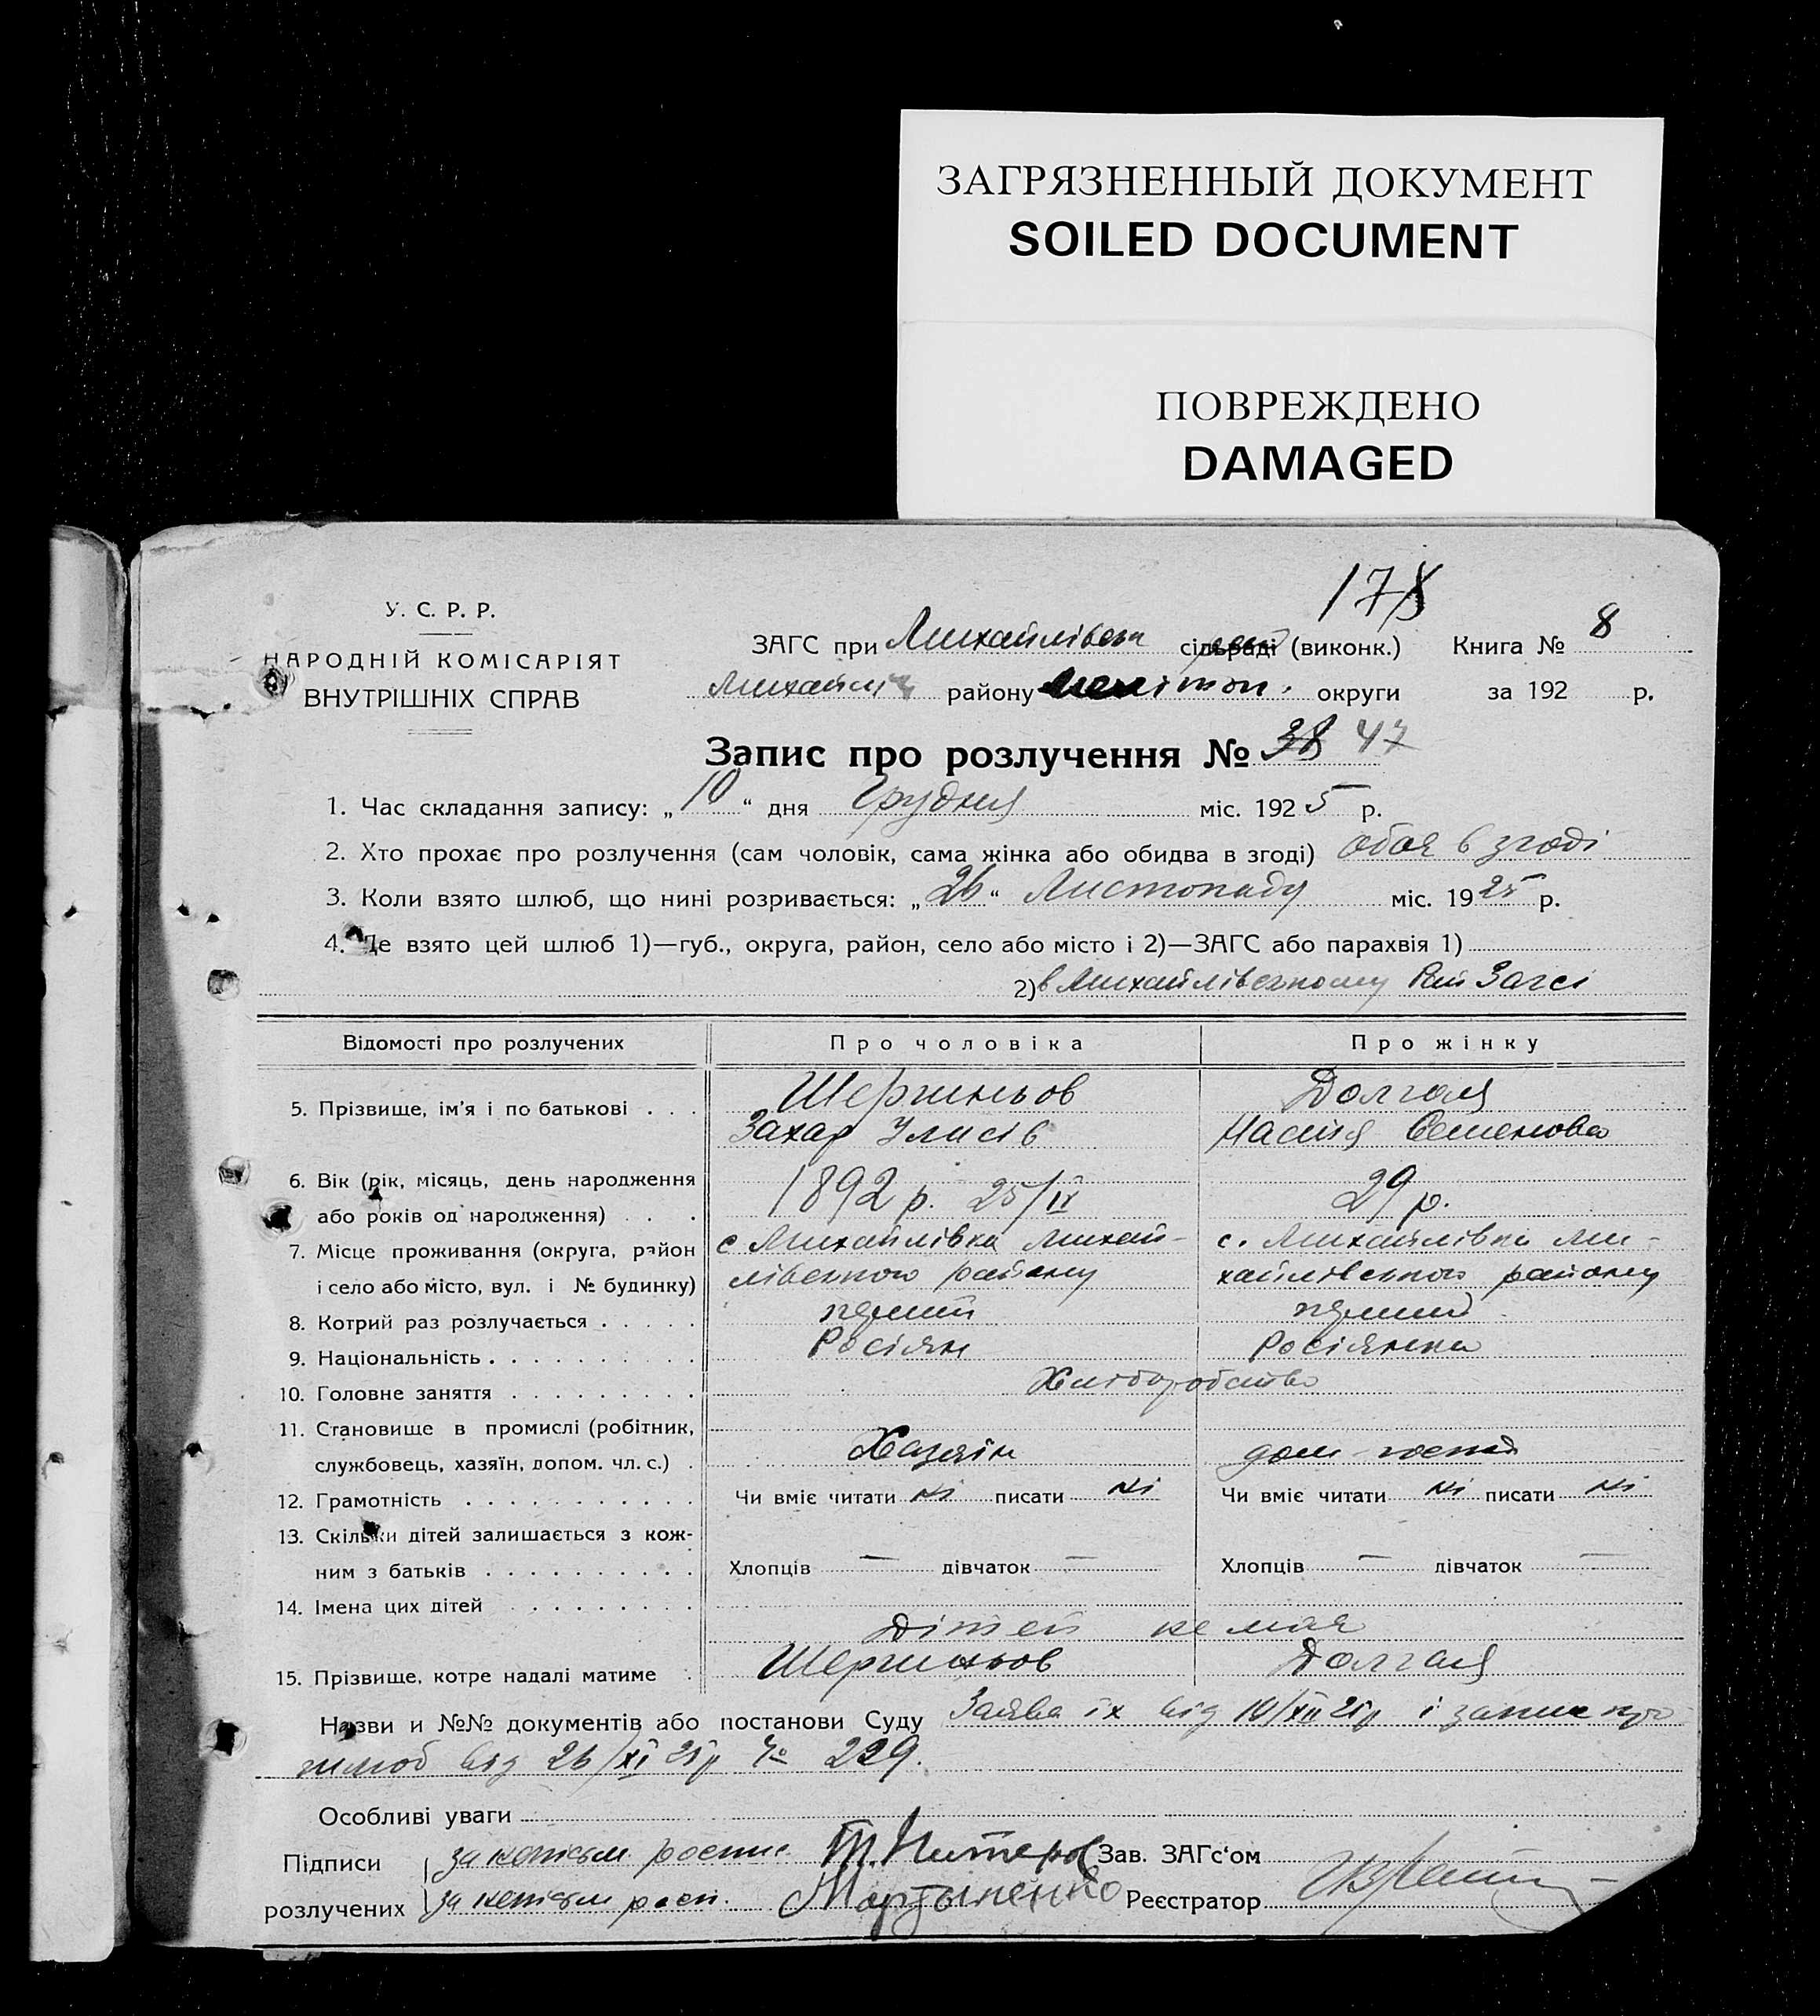 ЗАГРЯЗНЕННЫЙ ДОКУМЕНТ
SOILED DOCUMENT
ПОВРЕЖДЕНО
DAMAGED
178
У. С. Р. Р.
НАРОДНІЙ КОМІСАРІЯТ
ВНУТРІШНІХ СПРАВ
ЗАГС при Михайлівськ сільраді (виконк.) Книга № 8
Михайлів району Мелітоп. округи за 192 р.
Запис про розлучення № 38 47
1. Час складання запису: „10“ дня Грудня міс. 1925 р.
2. Хто прохає про розлучення (сам чоловік, сама жінка або обидва в згоді) обоя в згоді
3. Коли взято шлюб, що нині розривається: „26“ Листопаду міс. 1925 р.
4. Де взято цей шлюб 1)—губ., округа, район, село або місто і 2)—ЗАГС або парахвія 1)
2) в Михайлівському Рай Загсі
Відомості про розлучених Про чоловіка Про жінку
5. Прізвище, ім'я і по батькові . . . Шергиньов Долгая
Захар Настя Семенова
6. Вік (рік, місяць, день народження
або років од народження) . . . 1892 р. 25/IX 29 р.
7. Місце проживання (округа, район с Михайлівка Михай- с. Михайлівка Ми-
і село або місто, вул. і № будинку) лівського району хайлівського району
8. Котрий раз розлучається . . . . . перший перший
9. Національність . . . . . . . . . . Росіян Росіянка
10. Головне заняття . . . . . . . . . Хліборобство
11. Становище в промислі (робітник,
службовець, хазяїн, допом. чл. с.) . Хазяїн дом госпад
12. Грамотність . . . . . . . . . . . Чи вміє читати ні писати ні Чи вміє читати ні писати ні
13. Скільки дітей залишається з кож-
ним з батьків . . . . . . . . . . Хлопців — дівчаток — Хлопців — дівчаток —
14. Імена цих дітей . . . . . . . . .
Дітей не має
15. Прізвище, котре надалі матиме . Шергиньов Долгая
Назви и №№ документів або постанови Суду Заява їх від 10/XII 25р і запис про
шлюб від 26/XI 25р № 229.
Особливі уваги
Підписи за неписьм роспис Т. Питеров Зав. ЗАГс‘ом
розлучених за неписьм росп. Мартыненко Реєстратор